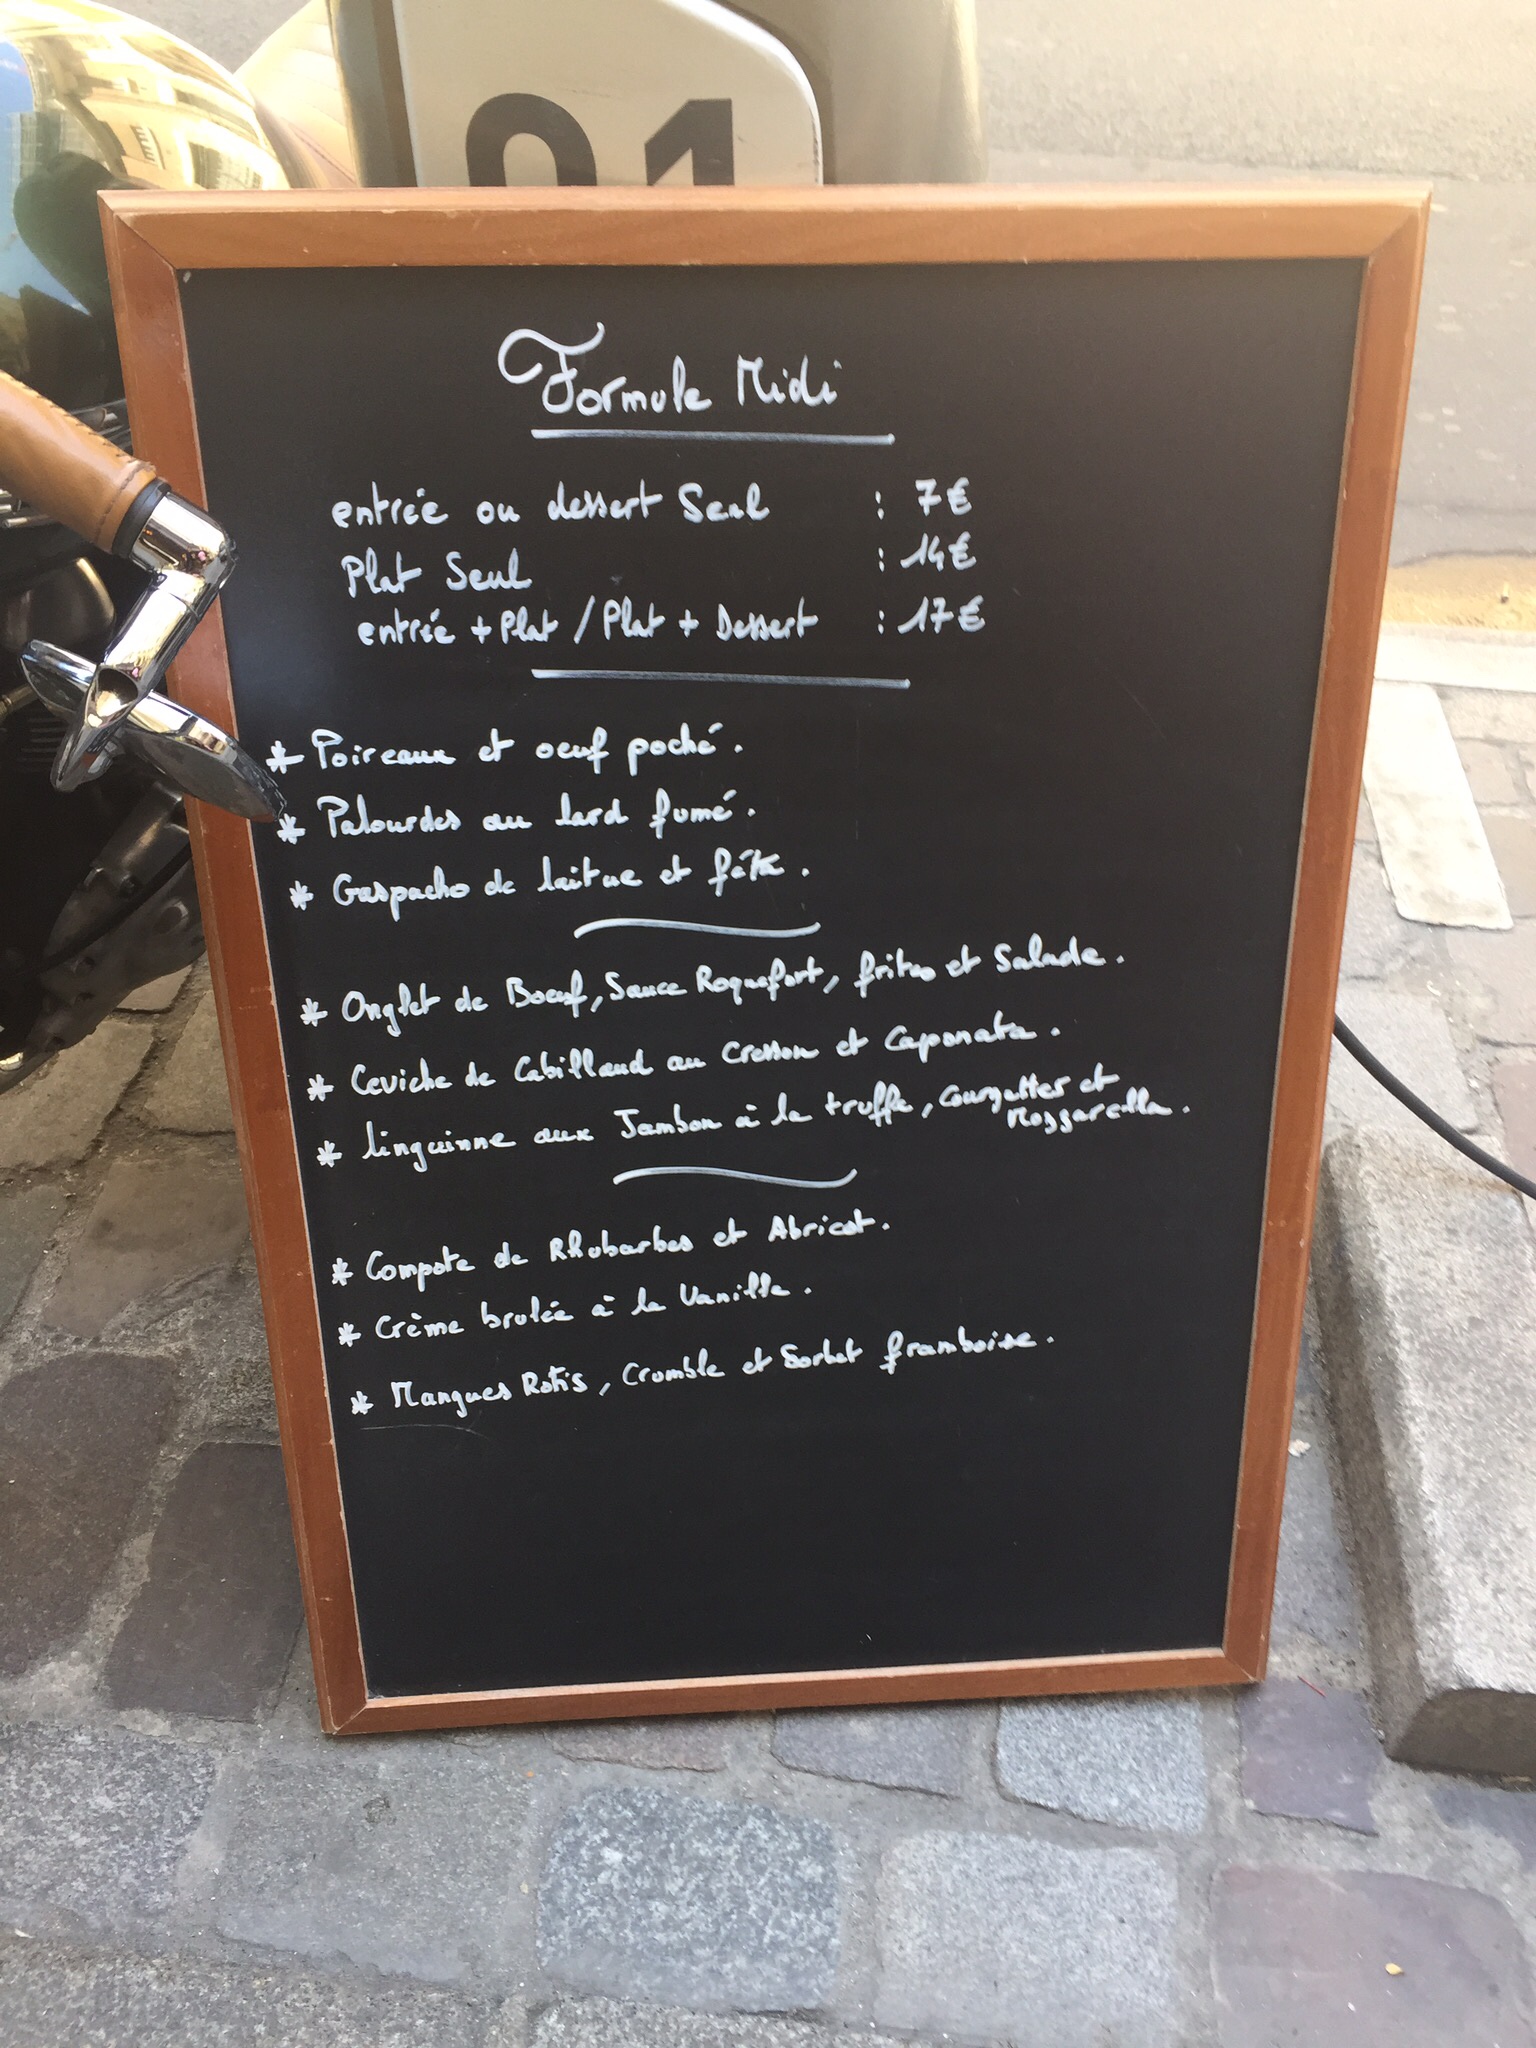 01
Formule Midi
entrée ou dessert Seul : 7€
Plat Seul : 14€
entrée + Plat / Plat + Dessert : 17€
* Poireaux et oeuf poché.
* Palourdes au lard fumé.
* Gaspacho de laitue et féta.
* Onglet de Boeuf, Sauce Roquefort, frites et Salade.
* Ceviche de Cabillaud au Cresson et Caponata.
* linguinne aux Jambon à la truffe, Courgettes et
Mozzarella.
* Compote de Rhubarbes et Abricot.
* Crème brulée à la Vanille.
* Mangues Rotis, Crumble et Sorbet framboise.